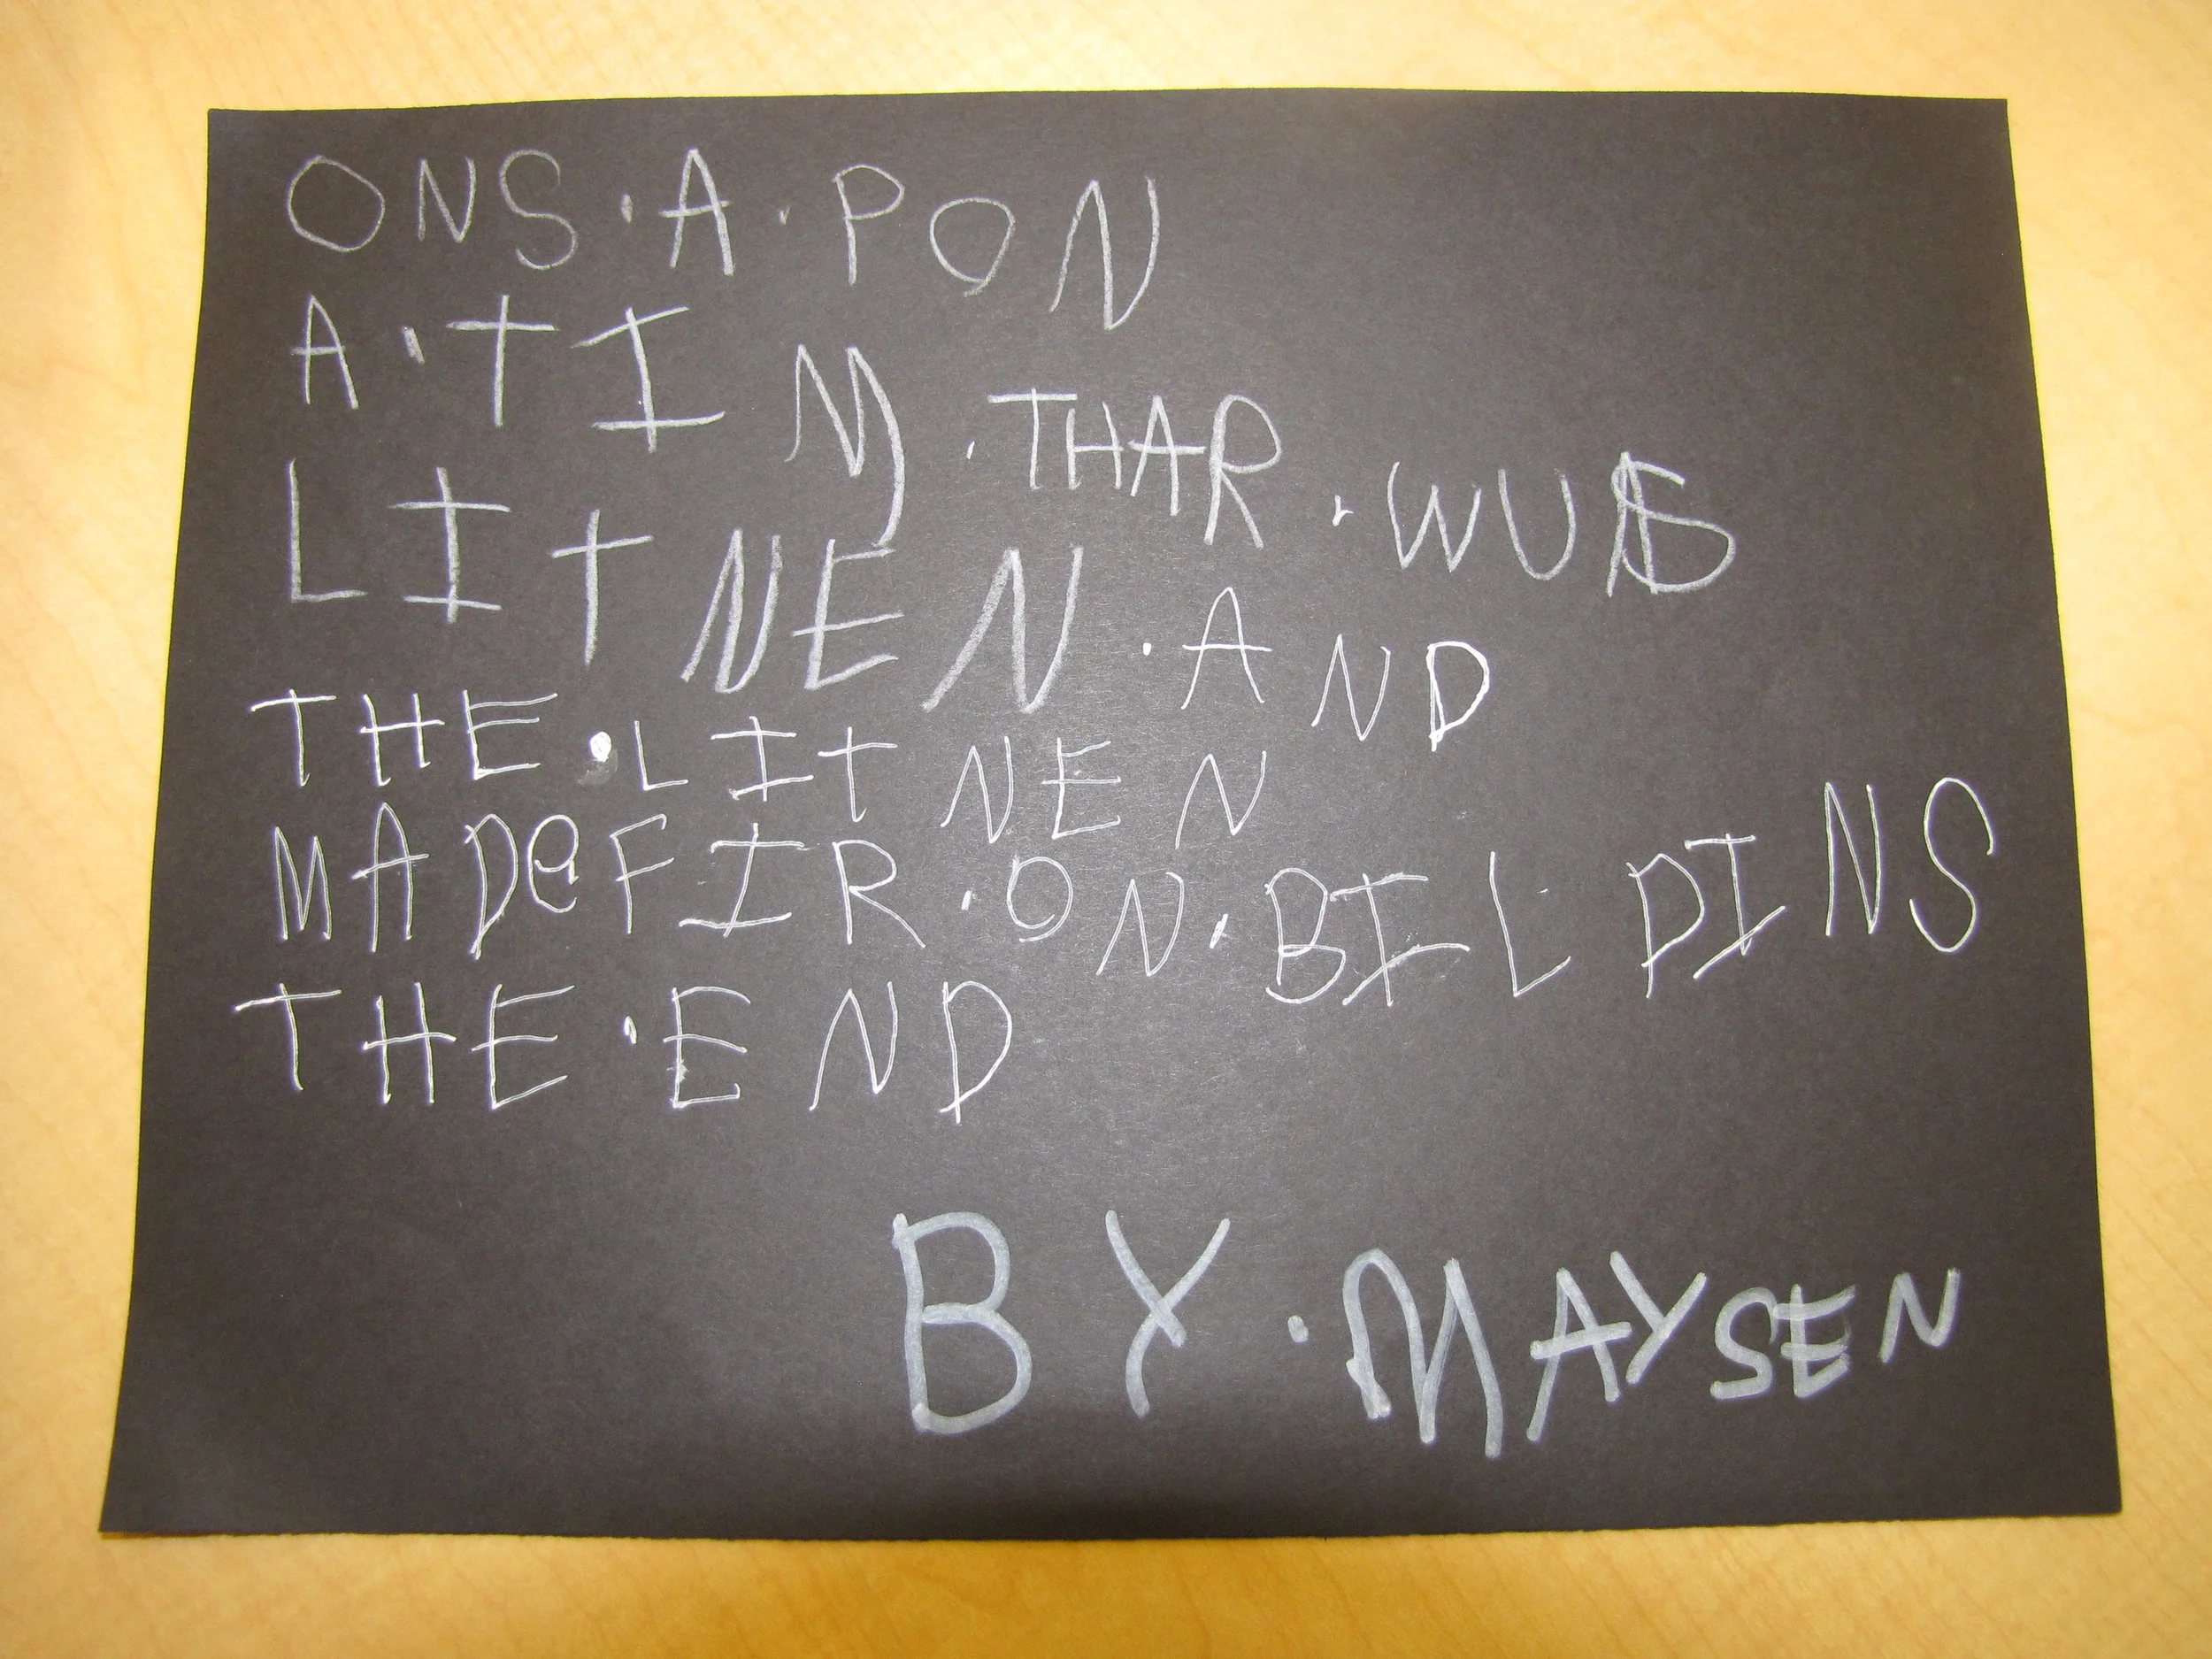 ONS·A·PON
A·TIM·THAR·WUS
LITNEN·AND
THE·LITNEN
MADeFIR·ON·BILDINS
THE·END
BY·MAYSEN